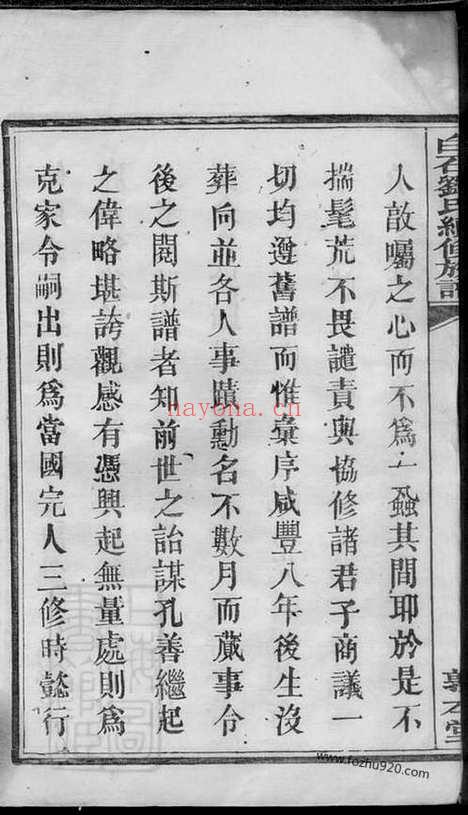 白石劉氏續修族譜
敦本堂
人敨囑之心而不爲一蝨其間耶於是不
揣髦荒不畏譴責與協修諸君子商議一
切均遵舊譜而惟彙序咸豐八年後生沒
葬向並各人事蹟勳名不數月而蕆事令
後之閱斯譜者知前世之詒謀孔善繼起
之偉略堪誇觀感有憑興起無量處則爲
克家令嗣出則爲當國完人三修時懿行
nayona.cn
www.fozhu920.com